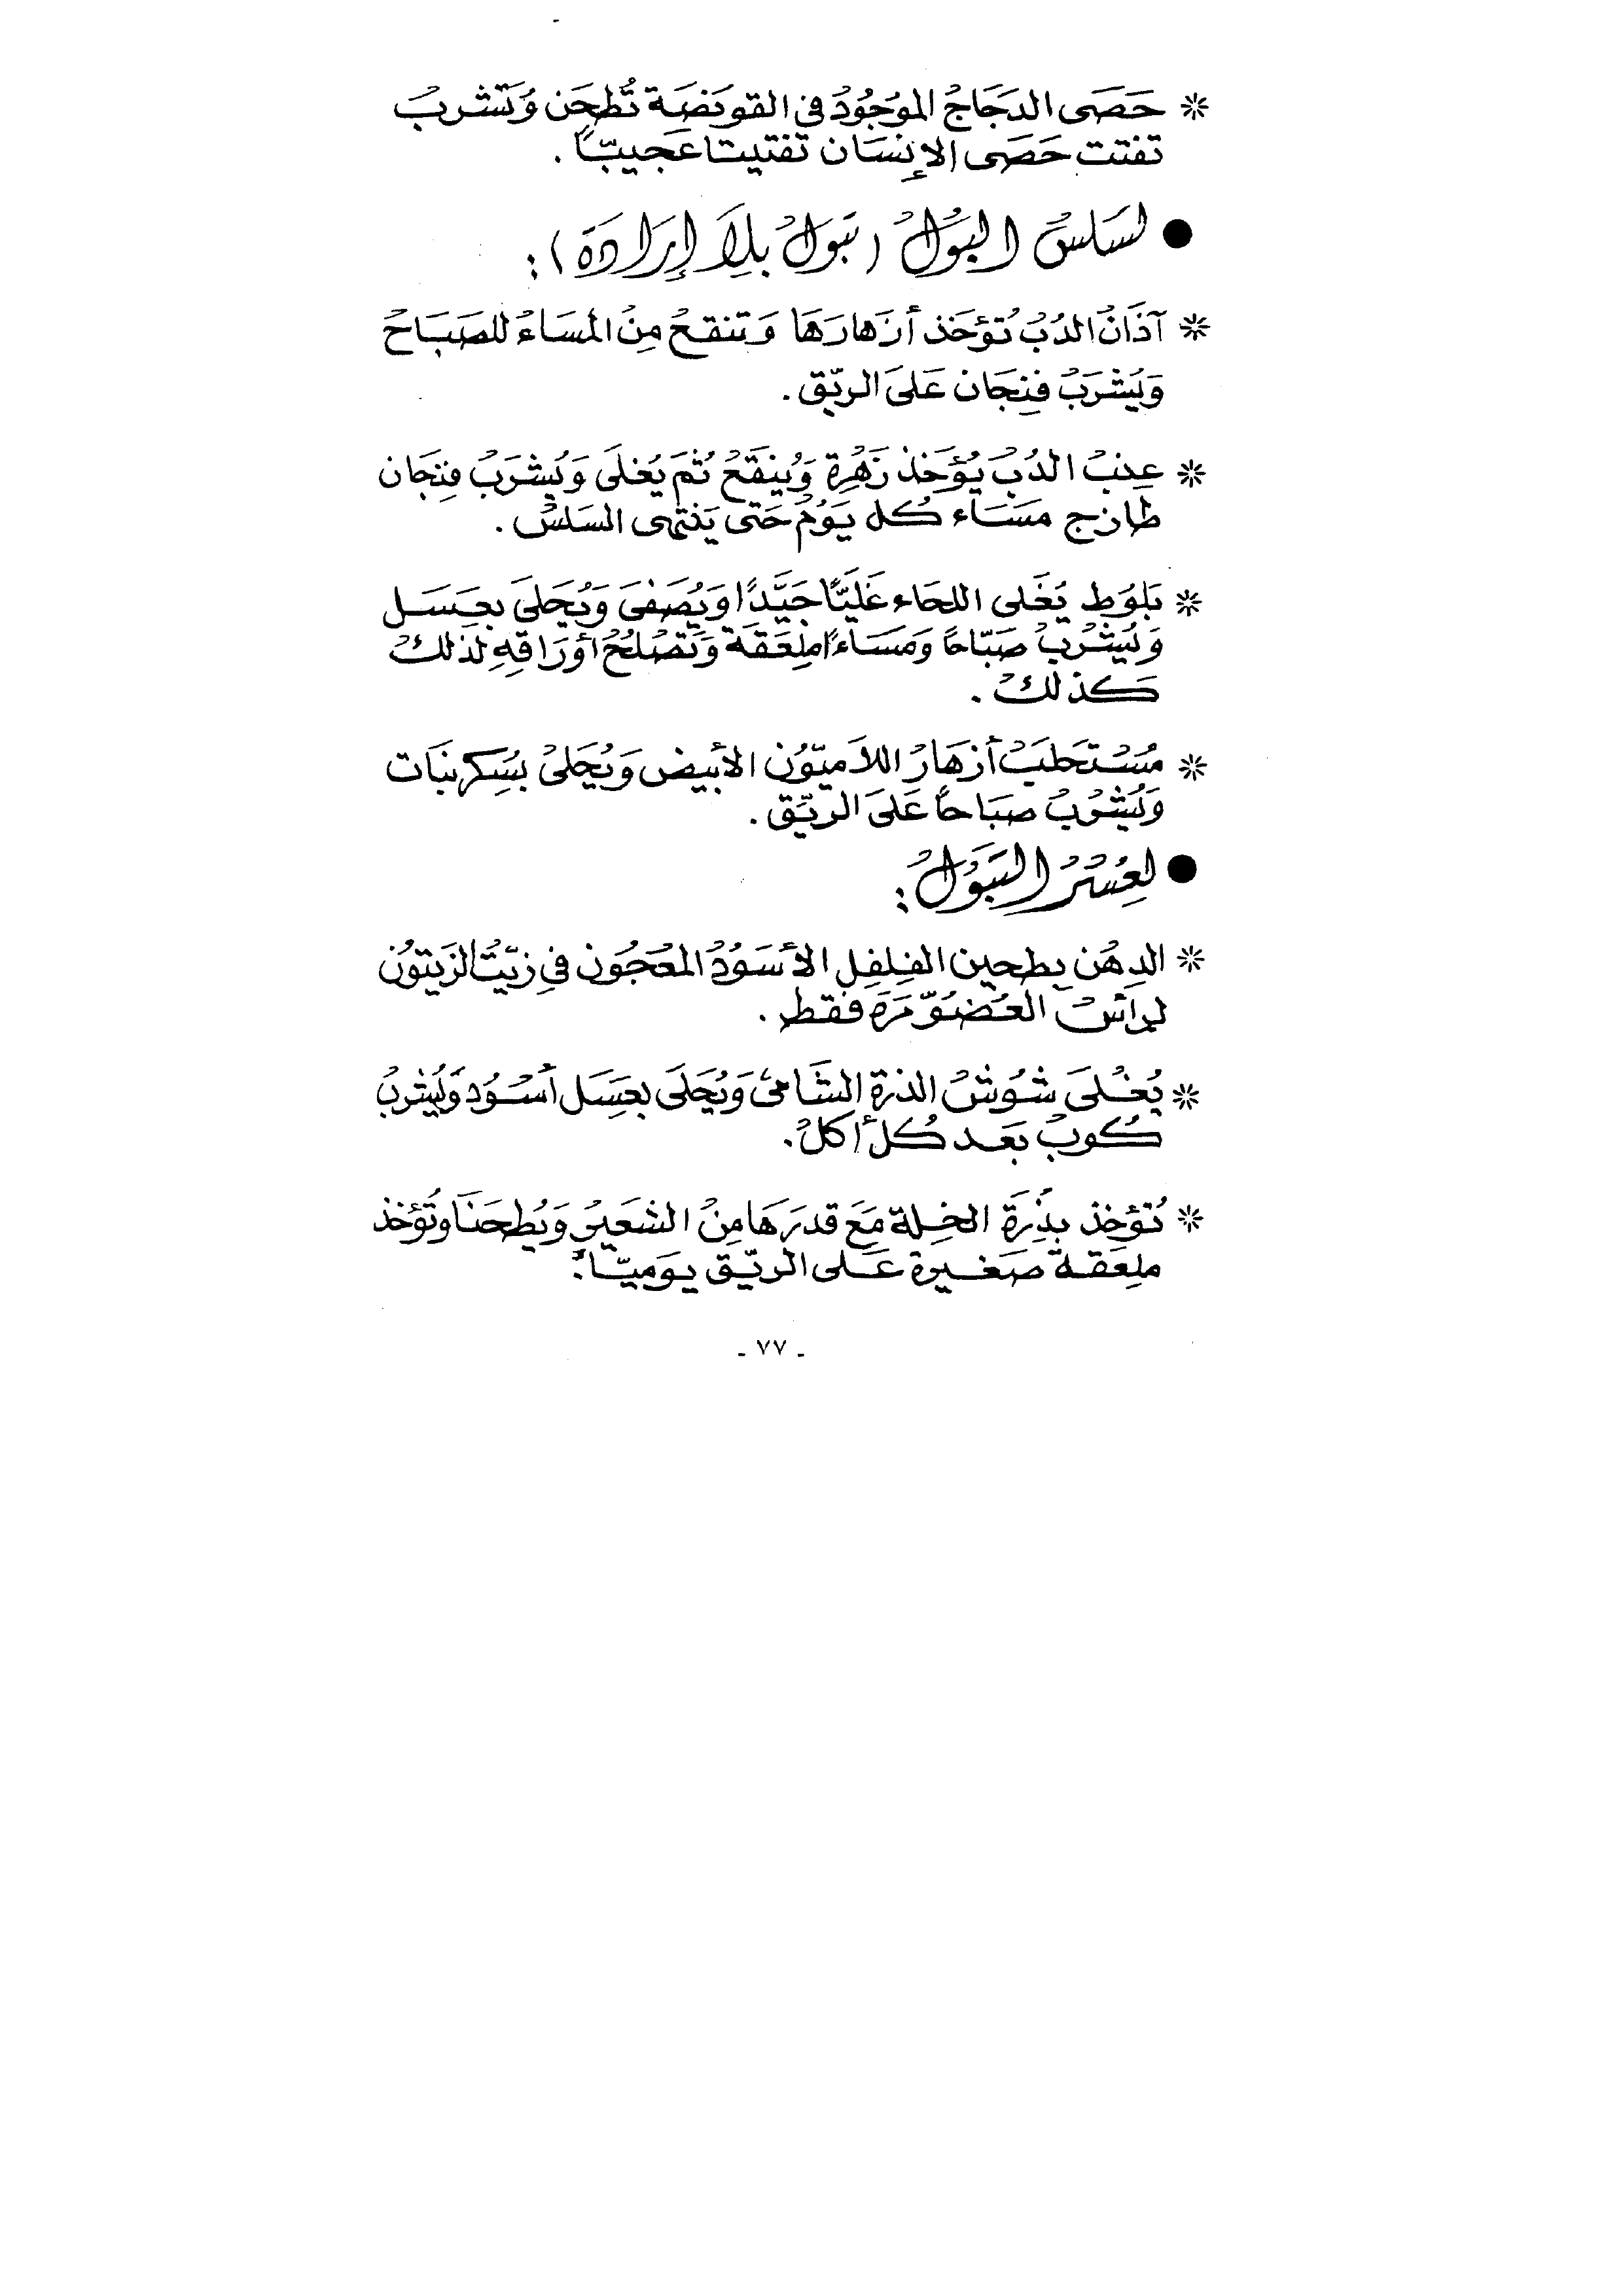 * حَصَى الدَجَاجُ الموُجُودُ فى القوَنضَة تُطحَن وُتَشربُ
تفتت حَصَى الإنسَان تفتيتا عَجيبّاً .
● لسَلسُ البَوُلُ (تبَولُ بلِاَ إرَادَة) :
* آذَانُ الدُبُ تُؤخَذ أزَهارَهَا وَتنقعُ مِنُ المسَاءُ للصَبَاحُ
وَيُشْرَبُ فنِجَان عَلىَ الريّق .
* عِنبُ الدُبُ يُؤَخَذ زَهُرِة وَيُنقَعُ ثُمَ يُغلَى وَيُشرَبُ فنِجَان
طازج مسَسَاء كُل يَوُمُ حَتى يَنتهى السَلسُ .
* بَلوُط يُغَلى اللحَاء غَليَّا جَيَّدًا وَيُصَفىَ وَيُحَلىَ بعِسَسَل
وَيُشرُبُ صَبّاحًا وَمسَاءً املِعَقَة وَتَصُلحُ أوُرَاقهِ لذلكُ
كذلكُ .
* مُسُتحَلبَ أزهَارُ اللاَميّوُن الأبيض وَيُحَلىُ بسُكر نبَات
وَيُشرُبُ صبَاحاً عَلىَ الريِّق .
● لعِسُرُ التبَوَلُ :
* الدِهُن بطحين الفِلفِل الأسَوُدُ المعَجُون فىِ زيّتُ الزَيتوُن
لرأسُ العُضوُّ مَرَة فقط .
* يُغُلىَ شوُشُ الذرة الشَامىُ وَيُحَلَى بعَسَل أسُوُد وَيُشربُ
كُوبُ بَعَد كُل أكلُ .
* تُؤخِذ بذِرَة الخِلة مَعَ قدرَهَا مِنُ الشعَيرُ وَيُطحَنَا وتُؤخذ
ملِعَقة صَغيرة عَلى الريّق يوَميّاً .
- ٧٧ -